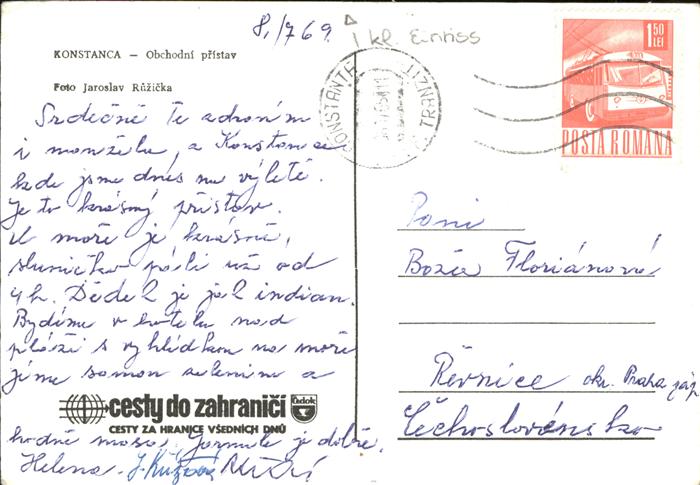 8./7 69.
1 kl. Entiss
KONSTANCA – Obchodní přístav
Foto Jaroslav Růžička
1.50
LEI
POSTA ROMANA
CONSTANTA
Srdečně Te zdravím
i manžela, z Konstance
kde jsme dnes na výletě.
Je to krásný přístav.
U moře je krásně,
sluníčko pálí už od
4 h. Děda je jak indian.
Bydlíme v hotelu nad
pláží s vyhlídkou na moře
jíme samou zeleninu a
cesty do zahraničí čedok
CESTY ZA HRANICE VŠEDNÍCH DNŮ
hodně masa. Jarmile je dobře.
Helena. J.
Paní
Boža Floriánová
Řevnice okr. Praha záp
Čechoslovensko